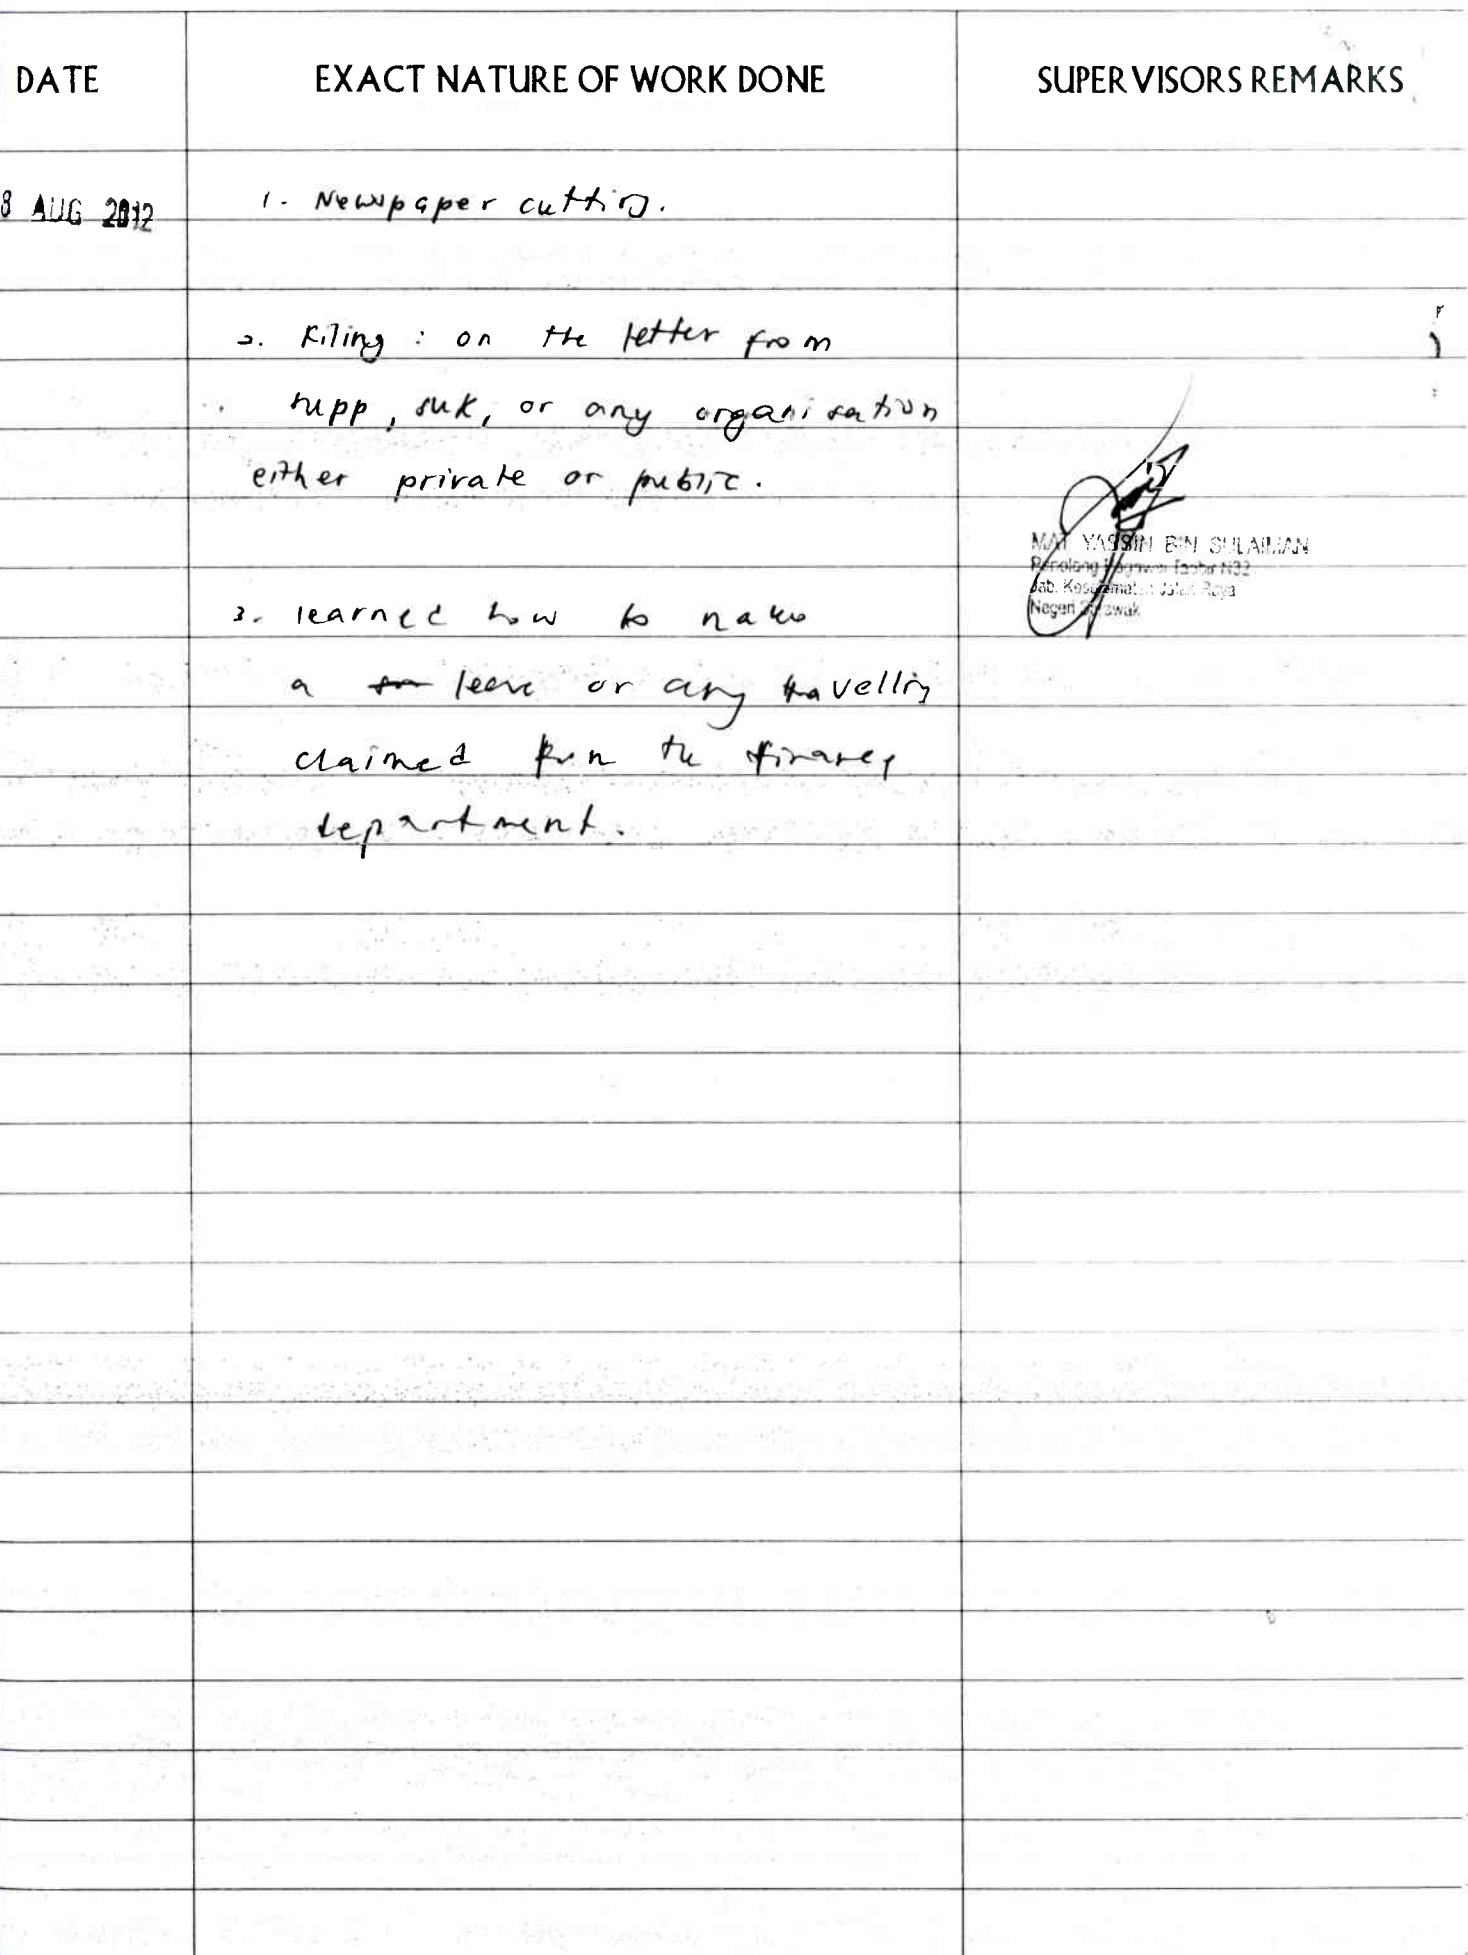 DATE EXACT NATURE OF WORK DONE SUPERVISORS REMARKS
8 AUG 2012 1. Newspaper cutting.
2. Filing : on the letter from
supp, suk, or any organisation
either private or public.
MAT YASSIN BIN SULAIMAN
Penolong Pegawai Tadbir N32
Jab. Keselamatan Jalan Raya
Negeri Sarawak
3. learned how to make
a leave or any travelling
claimed from the finance
department.